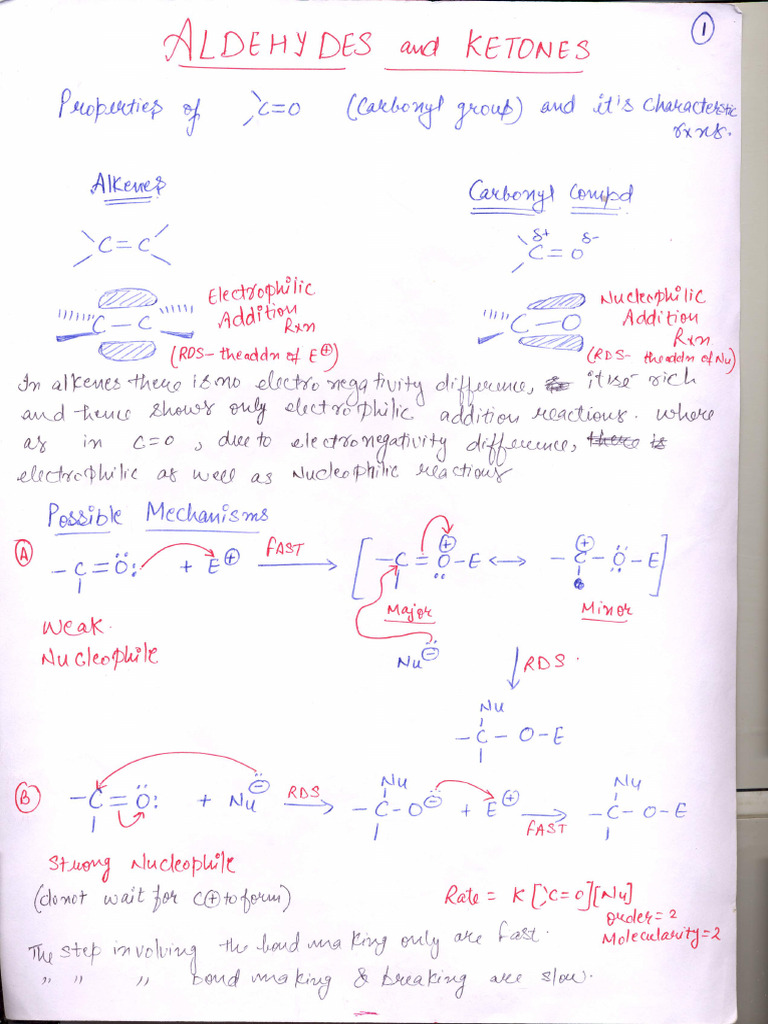 1
ALDEHYDES and KETONES
Properties of >C=O (Carbonyl group) and it's characteristic
rxns.
Alkenes
Carbonyl Compd
C=C
δ+ δ-
C=O
Electrophilic
Addition
Rxn
(RDS- the addn of E⊕)
C-C
Nucleophilic
Addition
Rxn
(RDS- the addn of Nu)
C-O
In alkenes there is no electronegativity difference, it is rich
and hence shows only electrophilic addition reactions. where
as in C=O, due to electronegativity difference, there is
electrophilic as well as Nucleophilic reactions
Possible Mechanisms
A
-C=Ö: + E⊕ FAST [-C=O⊕-E ↔ -C⊕-Ö-E]
Weak
Nucleophile
Major
Minor
Nu⊖
RDS.
Nu
-C-O-E
B
-C=Ö: + Nu⊖ RDS Nu -C-O⊖ + E⊕ FAST Nu -C-O-E
Strong Nucleophile
(do not wait for C⊕ to form)
Rate = K[>C=O][Nu]
order=2
Molecularity=2
The step involving the bond making only are fast.
,, ,, ,, bond making & breaking are slow.